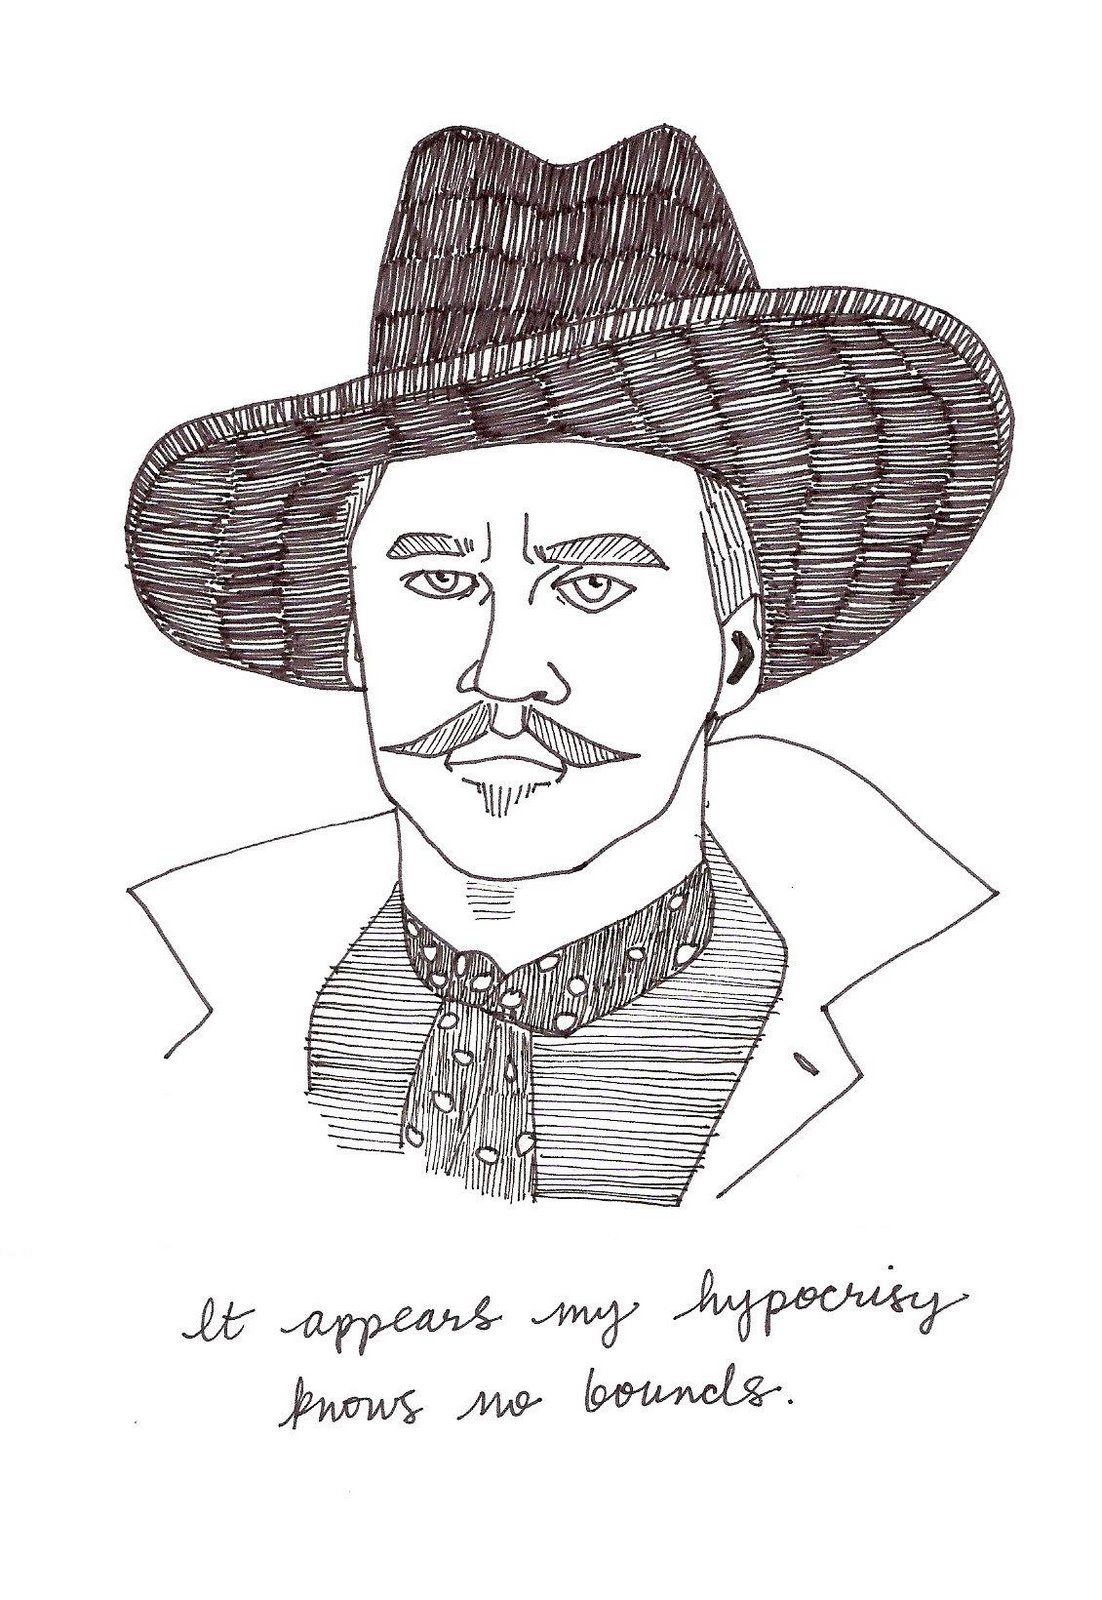 It appears my hypocrisy
knows no bounds.